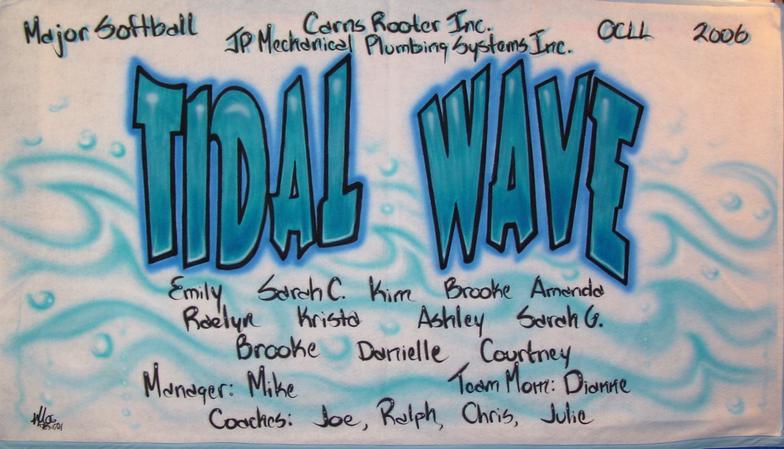 Major Softball Carns Rooter Inc. OCLL 2006
JP Mechanical Plumbing Systems Inc.
TIDAL WAVE
Emily Sarah C. Kim Brooke Amanda
Raelyn Krista Ashley Sarah G.
Brooke Danielle Courtney
Manager: Mike Team Mom: Dianne
Coaches: Joe, Ralph, Chris, Julie